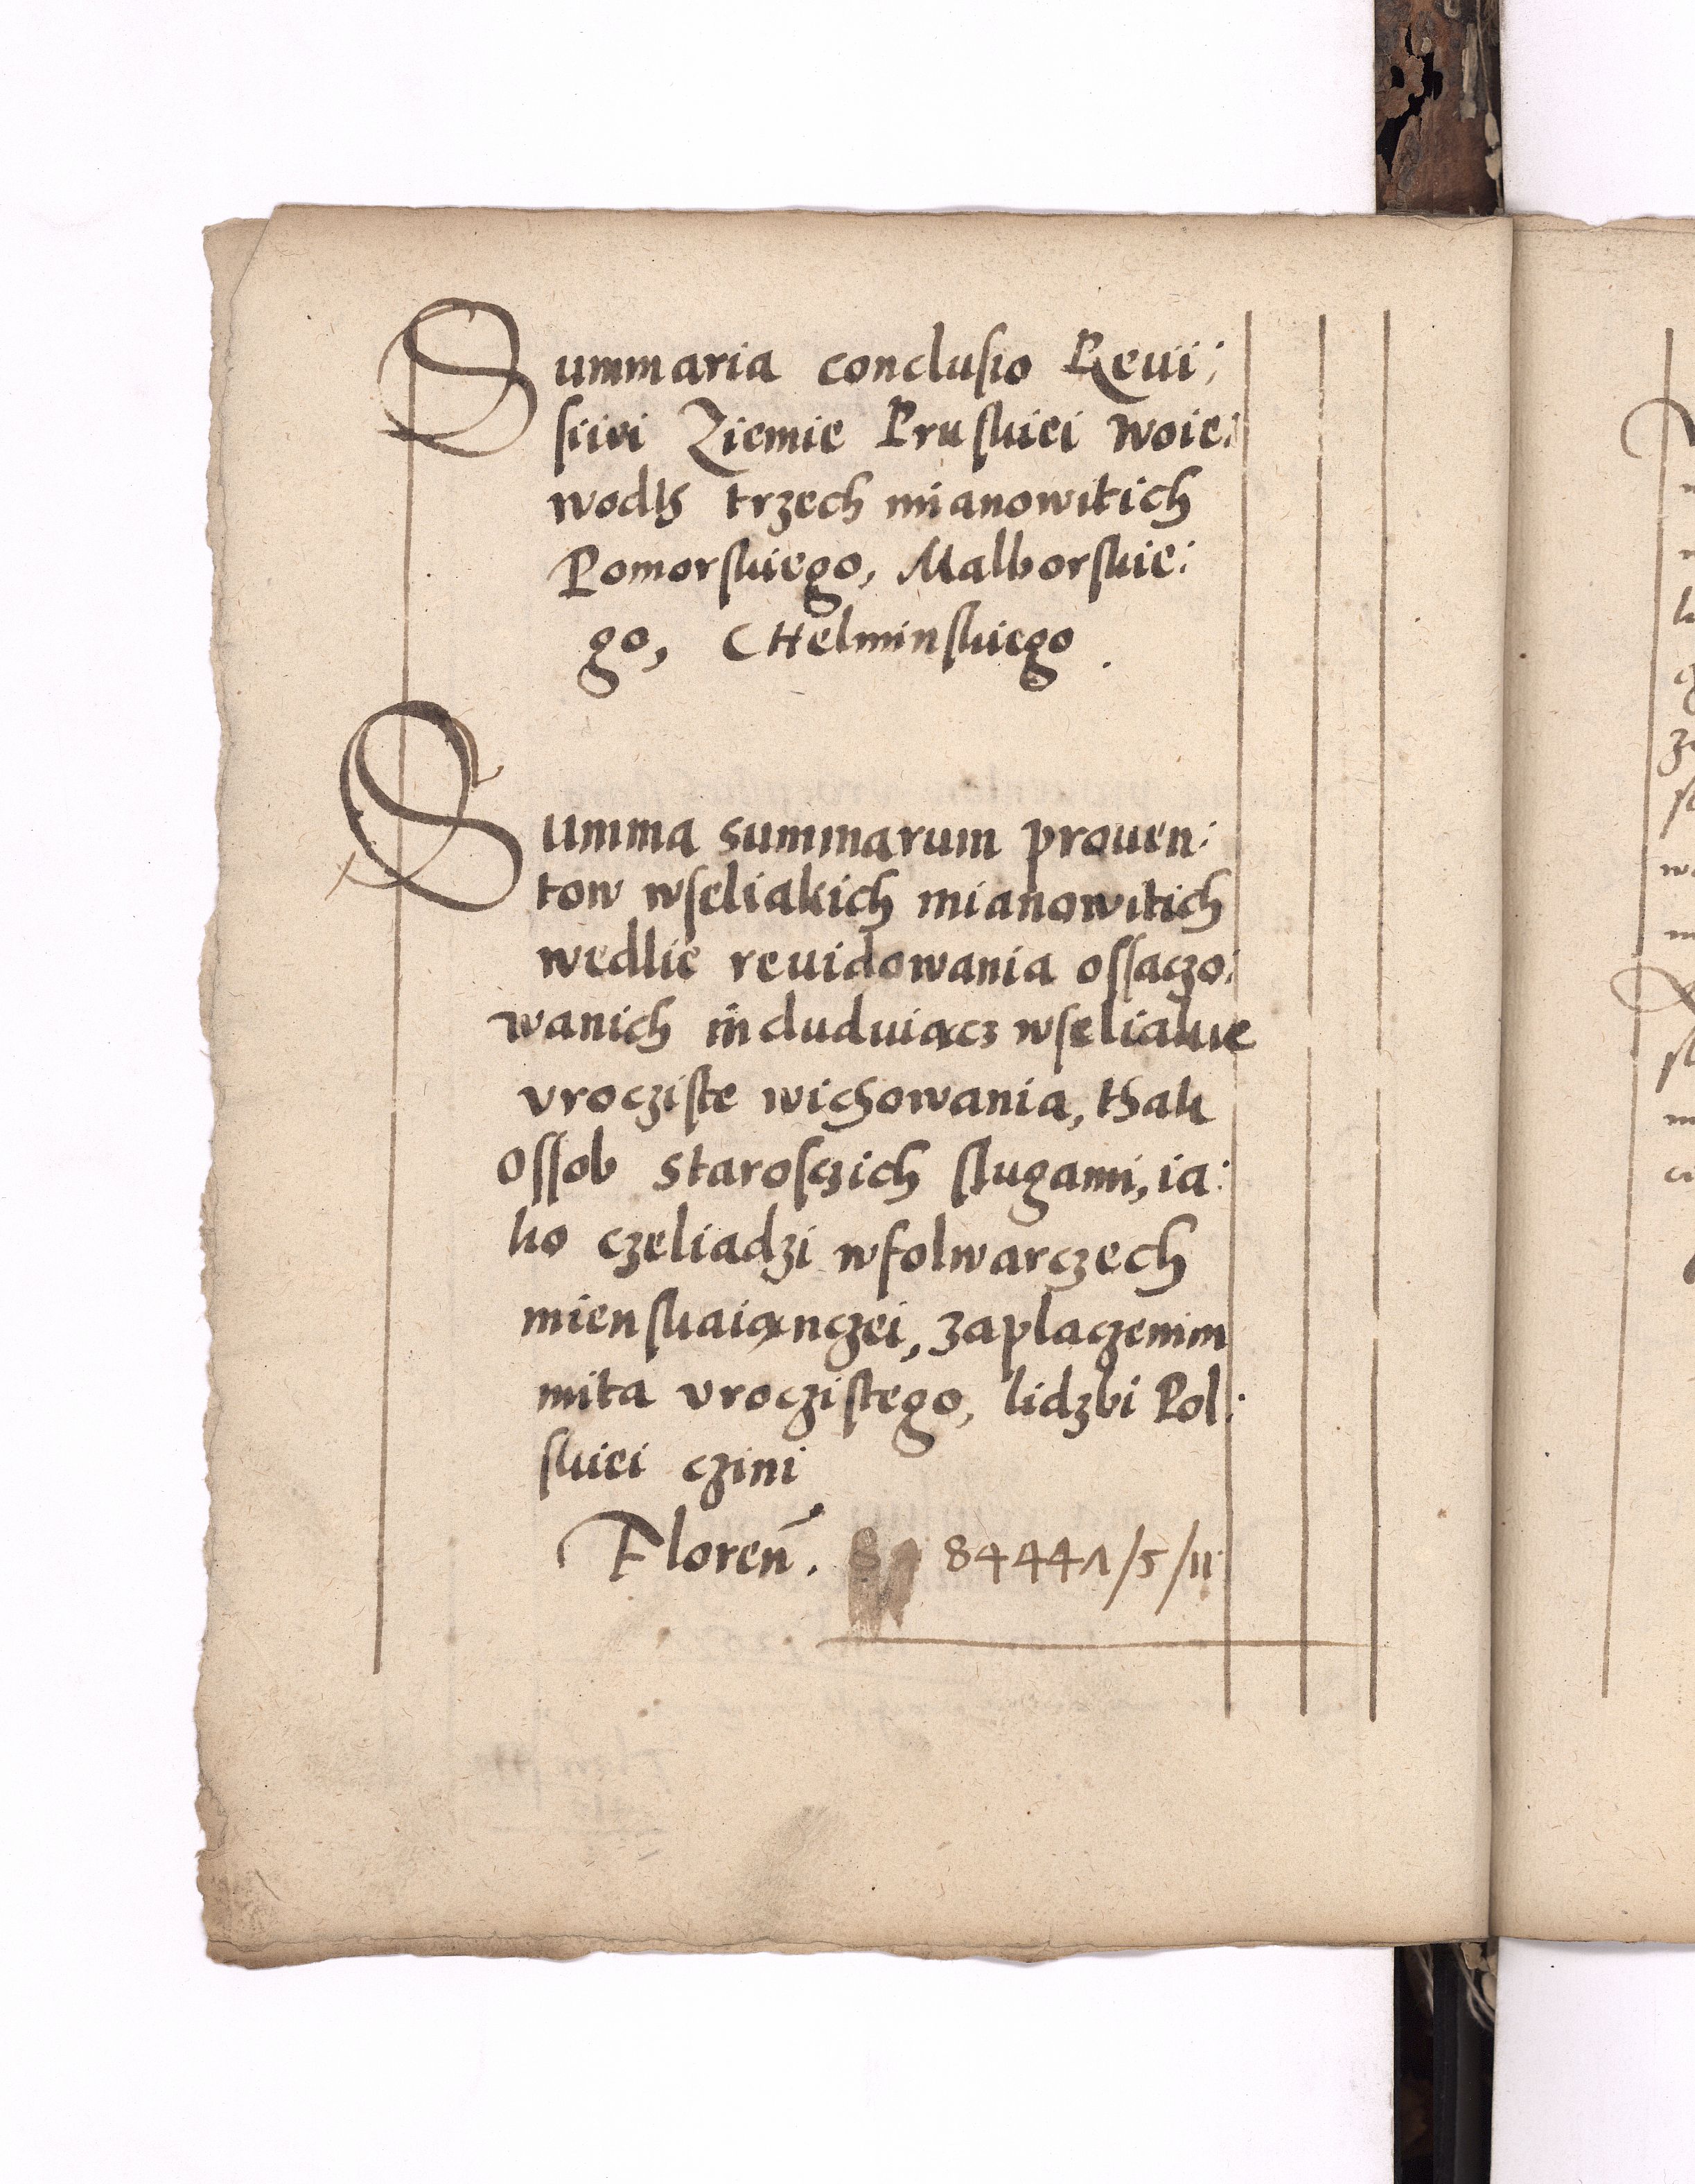 Summaria conclusio Reui:
siiei Ziemie Pruskiei woie:
wodtz trzech mianowitich
Pomorskiego, Malborskie:
go, CHelminskiego.
Summa summarum prouen:
tow wseliakich mianowitich
wedlie reuidowania ossaczo:
wanich includuiącz wseliakie
vrocziste wichowania, thak
Ossob starosczich slugami, ia:
ko czeliadzi wfolwarczech
mienskaiąnczei, zaplaczenim
mita vroczistego, lidzbi Pol:
skiei czini
Floren. 84441/5/11